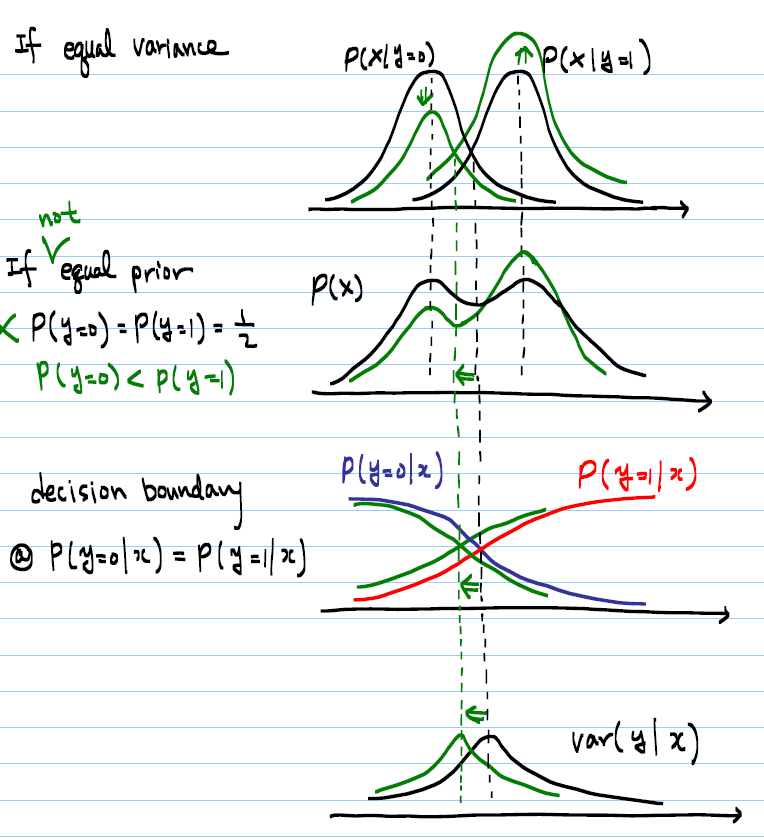 If equal variance
P(x|y=0)
P(x|y=1)
not
If equal prior
P(x)
P(y=0) = P(y=1) = 1/2
P(y=0) < P(y=1)
P(y=0|x)
P(y=1|x)
decision boundary
@ P(y=0|x) = P(y=1|x)
var(y|x)